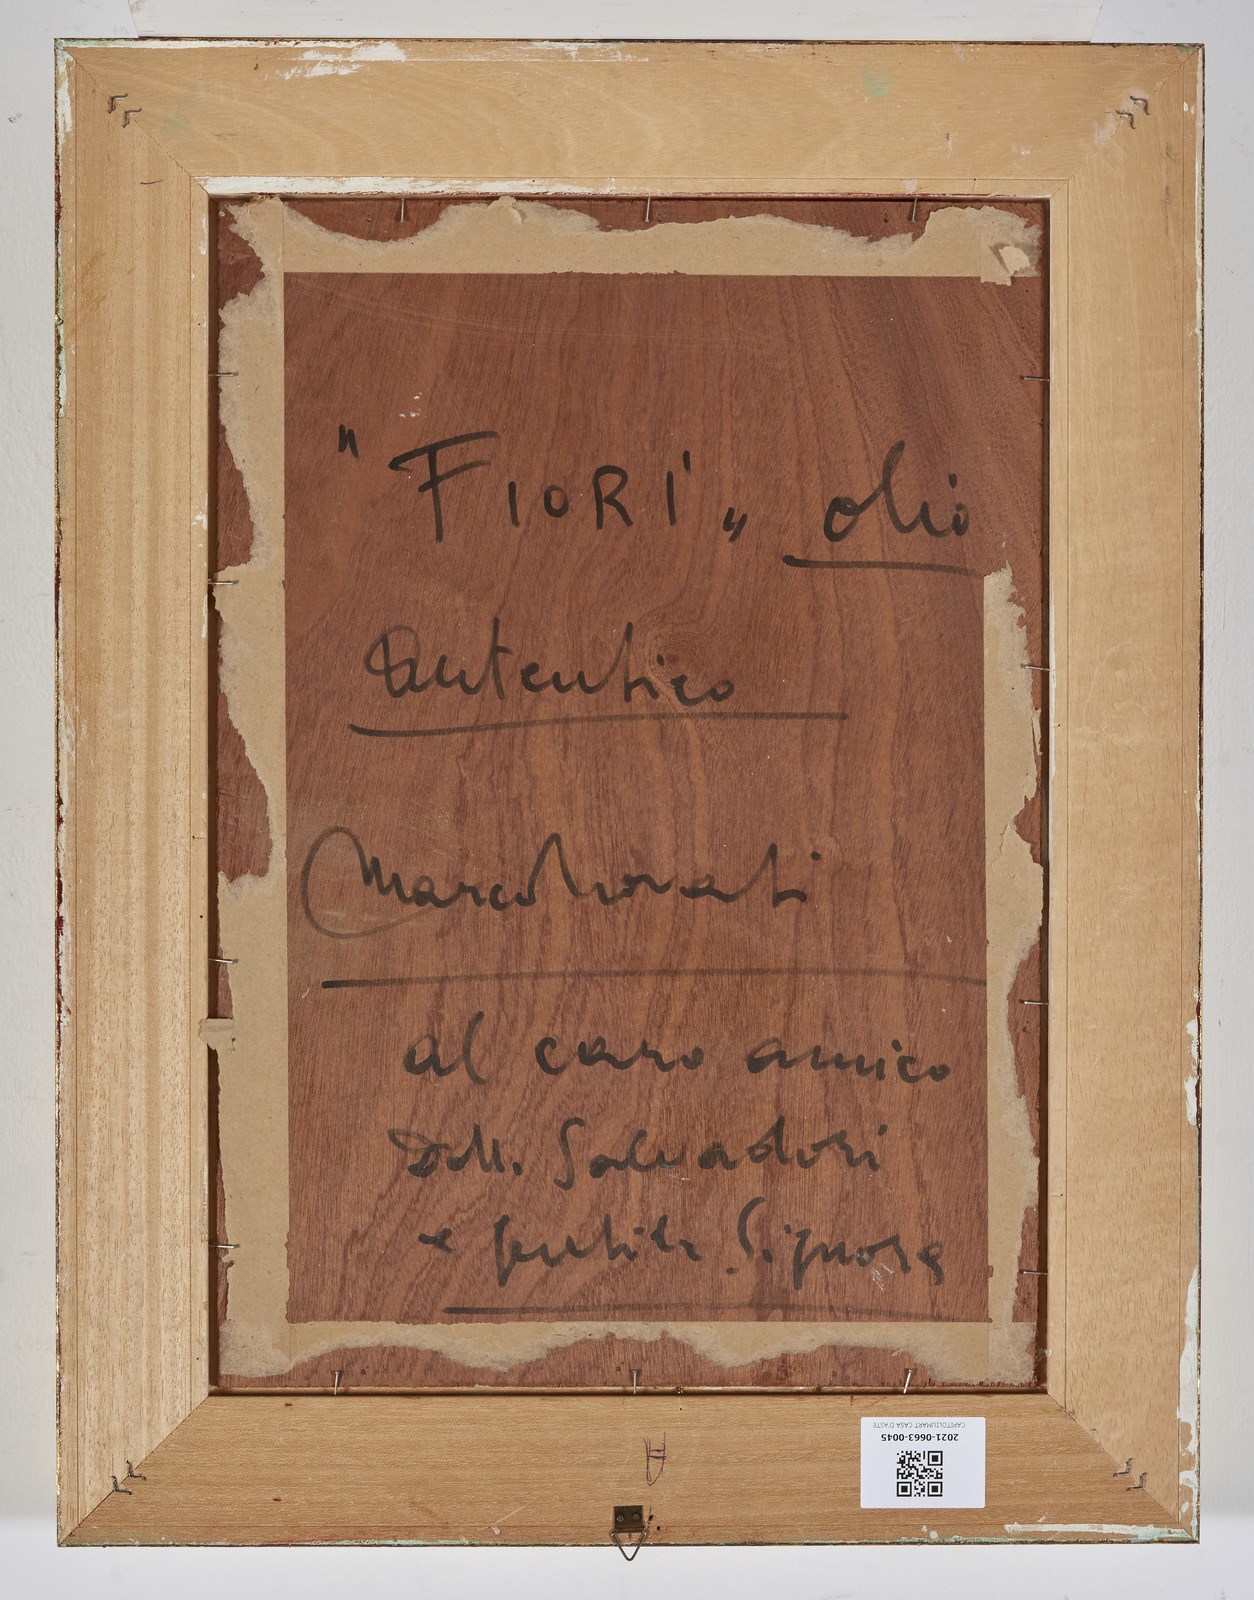 "FIORI„ olio
autentico
Marco Novati
al caro amico
Dott. Salvadori
e gentile Signora
2021-0663-0045
CAPITOLIUMART CASA D'ASTE